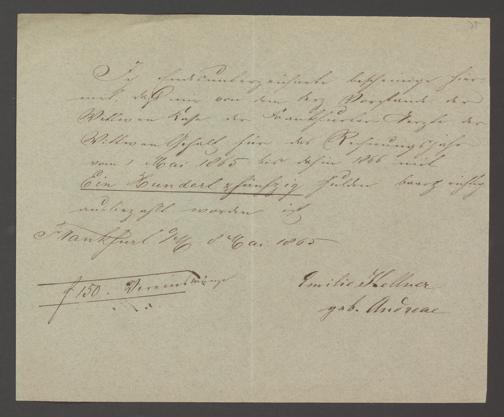 Ich Endesunterzeichnete bescheinige hier-
mit, daß mir von dem Vorstande der
Wittwen Kasse der Frankfurter Aerzte der
Wittwen Gehalt für das Rechnungsjahr
vom 1 Mai 1865 bis dahin 1866 mit
Ein Hundert & fünfzig Gulden baar richtig
ausbezahlt worden ist
Frankfurt d. 8 Mai 1865
f 150. Vereinsmünze
Emilie Kellner
geb. Andreae